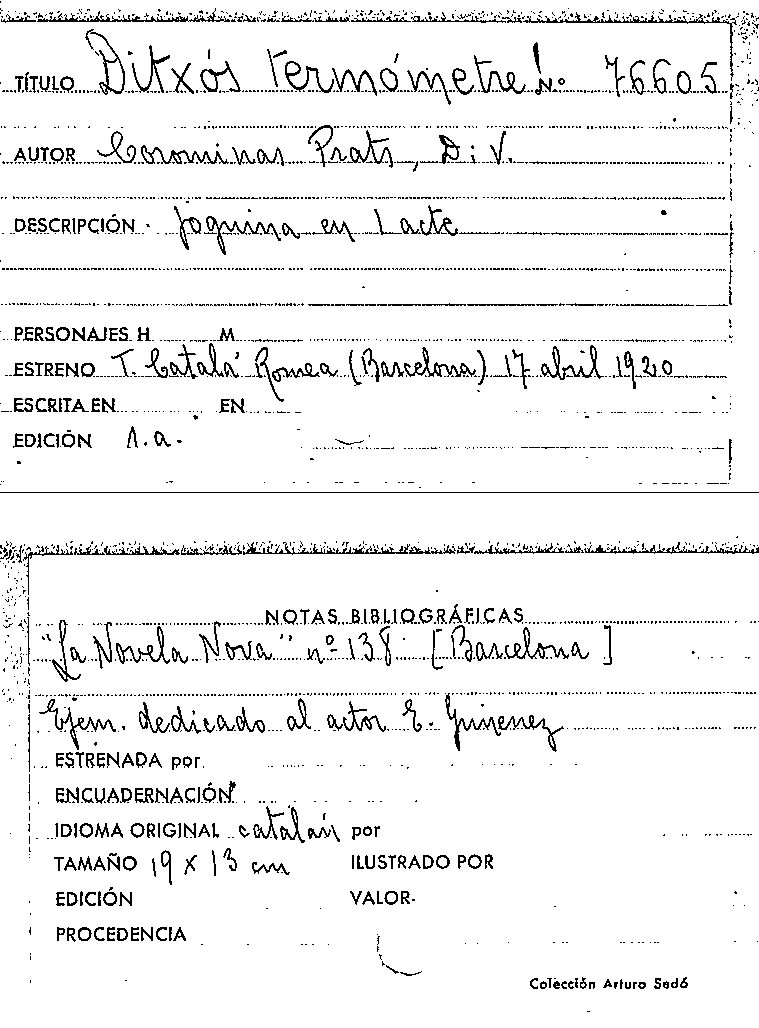 TÍTULO Ditxós termómetre! N.º 76605
AUTOR Corominas Prats, D. i V.
DESCRIPCIÓN · Joguina en 1 acte
PERSONAJES H M
ESTRENO T. Catalá Romea (Barcelona) 17 abril 1920
ESCRITA EN EN
EDICIÓN s.a.
NOTAS BIBLIOGRÁFICAS
"La Novela Nova" nº 138 [Barcelona]
Ejem. dedicado al actor E. Gimenez
ESTRENADA por
ENCUADERNACIÓN
IDIOMA ORIGINAL catalán por
TAMAÑO 19 x 13 cm ILUSTRADO POR
EDICIÓN VALOR
PROCEDENCIA
Colección Arturo Sedó